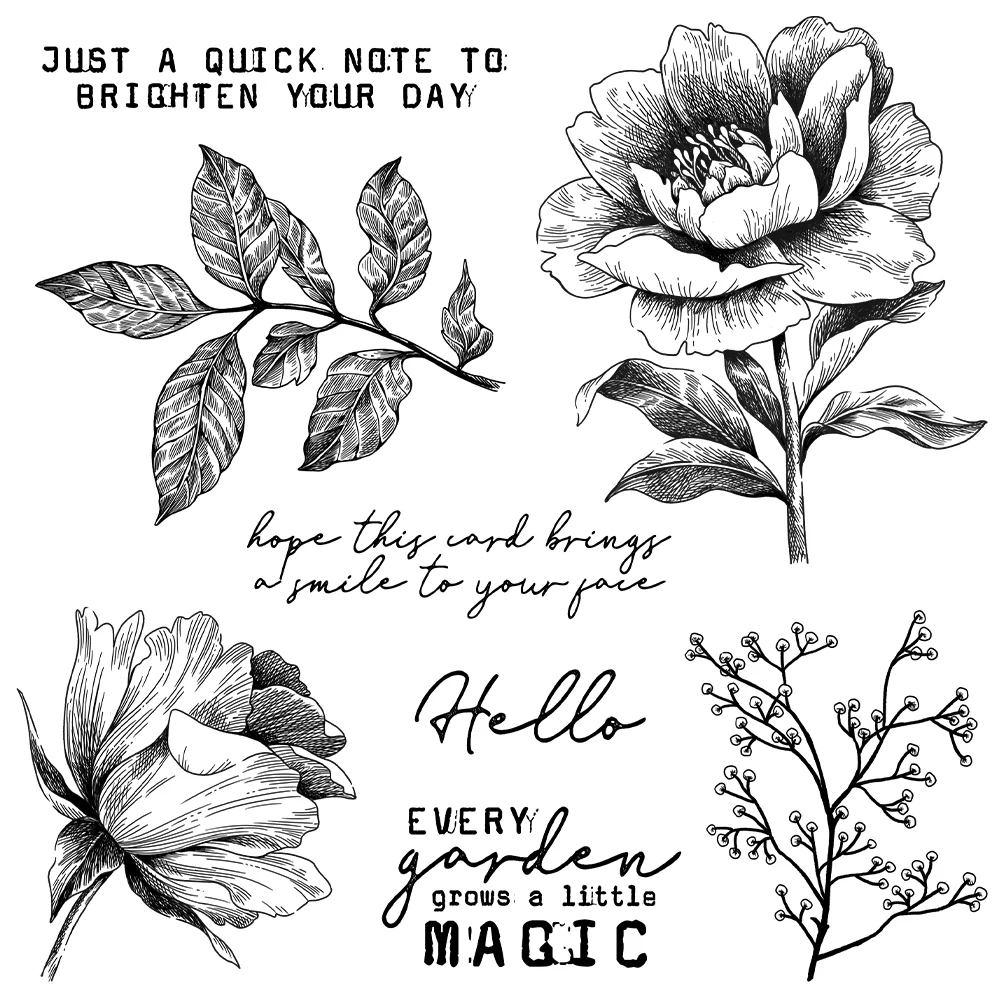 JUST A QUICK NOTE TO
BRIGHTEN YOUR DAY
hope this card brings
a smile to your face
Hello
EVERY
garden
grows a little
MAGIC